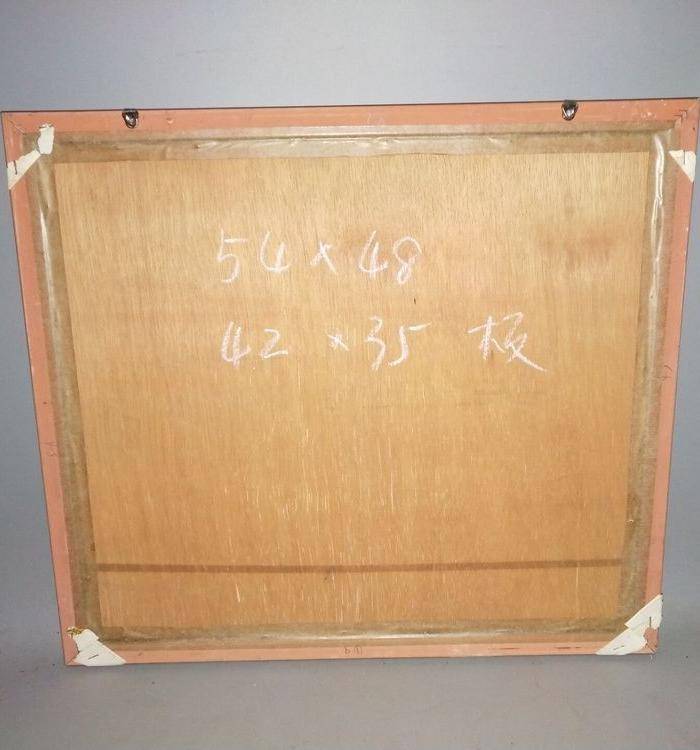 54×48
42×35 板